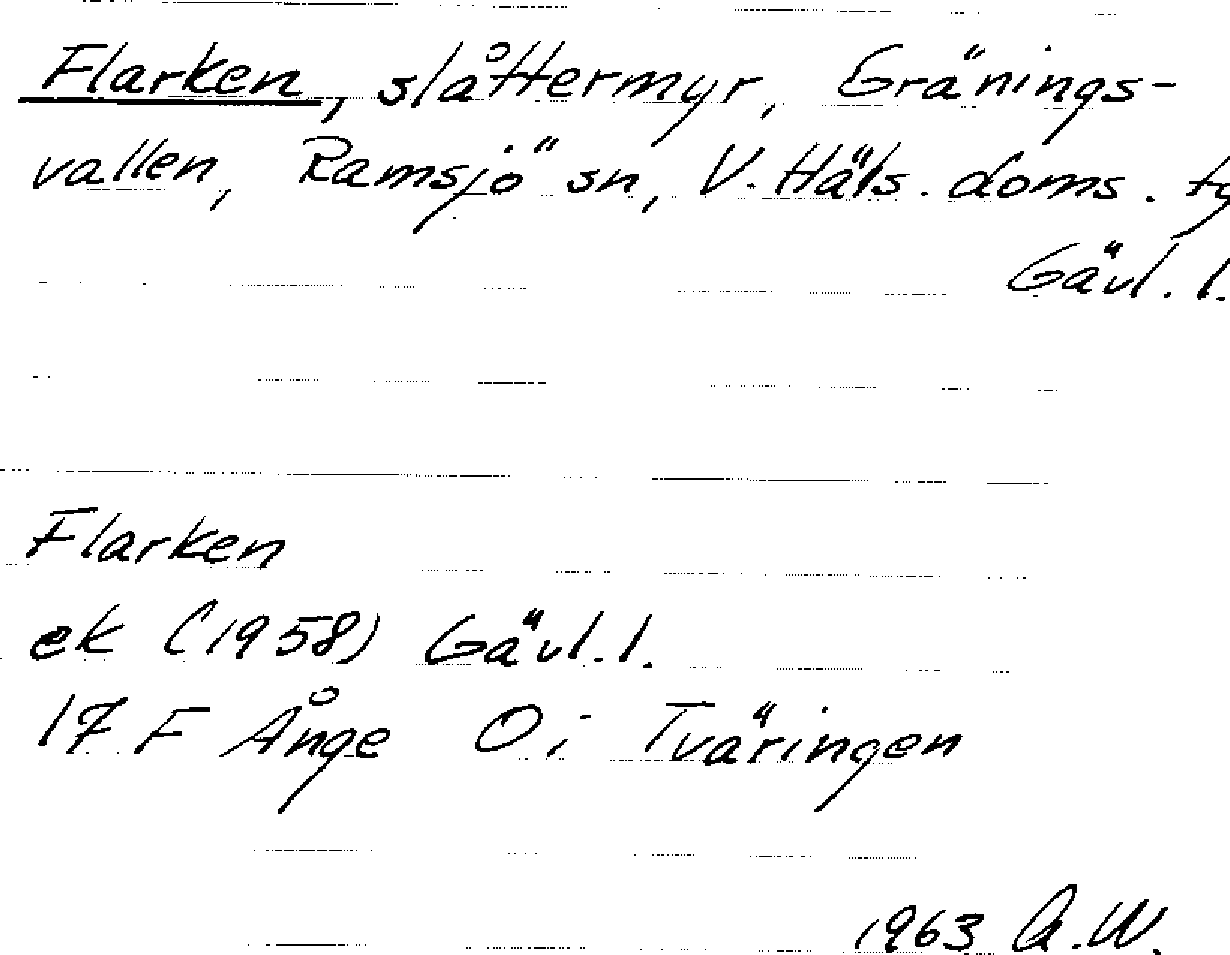 Flarken, slåttermyr, Gränings-
vallen, Ramsjö sn, V. Häls. doms. ty
Gävl. l.
Flarken
ek (1958) Gävl. l.
17 F Ånge O i Tväringen
1963 A.W.